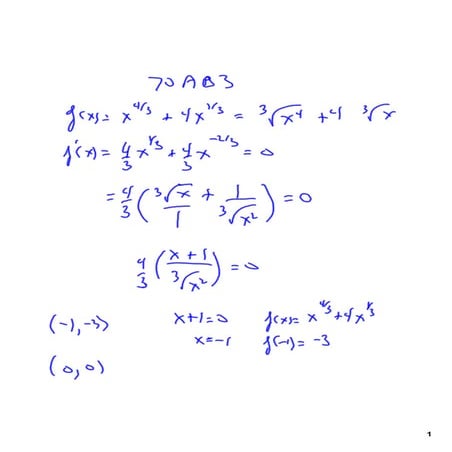 70 AB3
f(x) = x^{4/3} + 4x^{1/3} = ∛x⁴ + 4 ∛x
f'(x) = 4/3 x^{1/3} + 4/3 x^{-2/3} = 0
= 4/3 (∛x/1 + 1/∛x²) = 0
4/3 ((x+1)/∛x²) = 0
(-1, -3) x+1=0 f(x) = x^{4/3} + 4x^{1/3}
x=-1 f(-1) = -3
(0, 0)
1